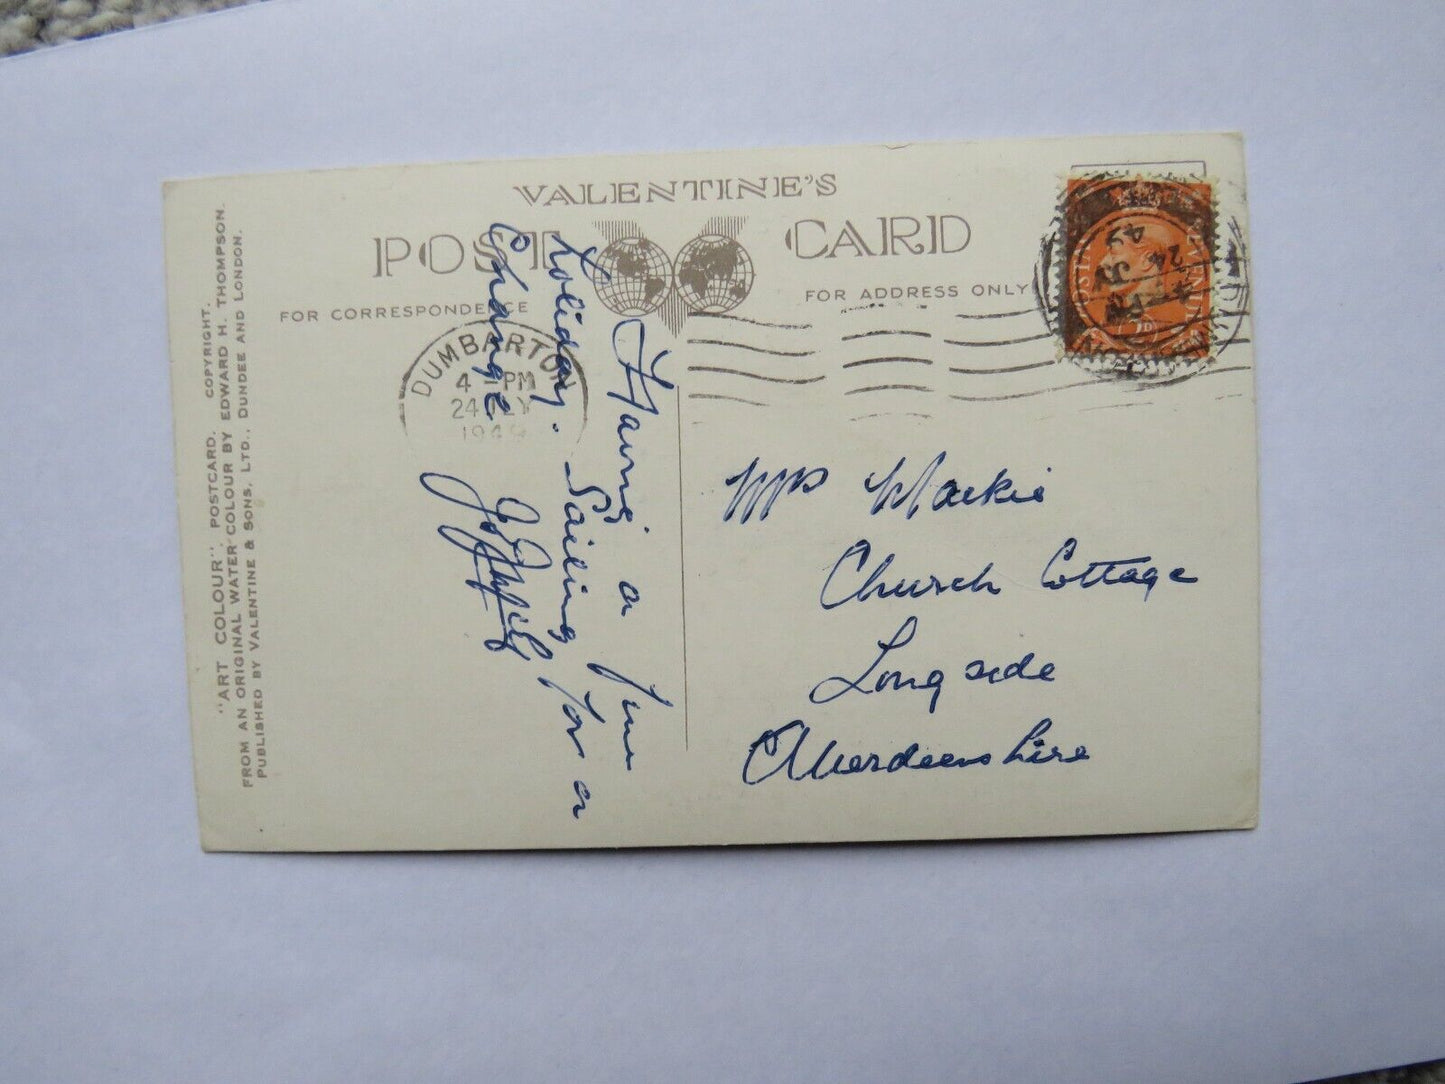 VALENTINE'S
POST CARD
FOR CORRESPONDENCE
FOR ADDRESS ONLY
"ART COLOUR" POSTCARD. COPYRIGHT.
FROM AN ORIGINAL WATER-COLOUR BY EDWARD H. THOMPSON.
PUBLISHED BY VALENTINE & SONS, LTD., DUNDEE AND LONDON.
DUMBARTON
4 - PM
24 JLY
1949
Having a fine
holiday. Sailing for a
Change
Mrs Mackie
Church Cottage
Longside
Aberdeenshire
POSTAGE REVENUE
4 PM
24 JY
49